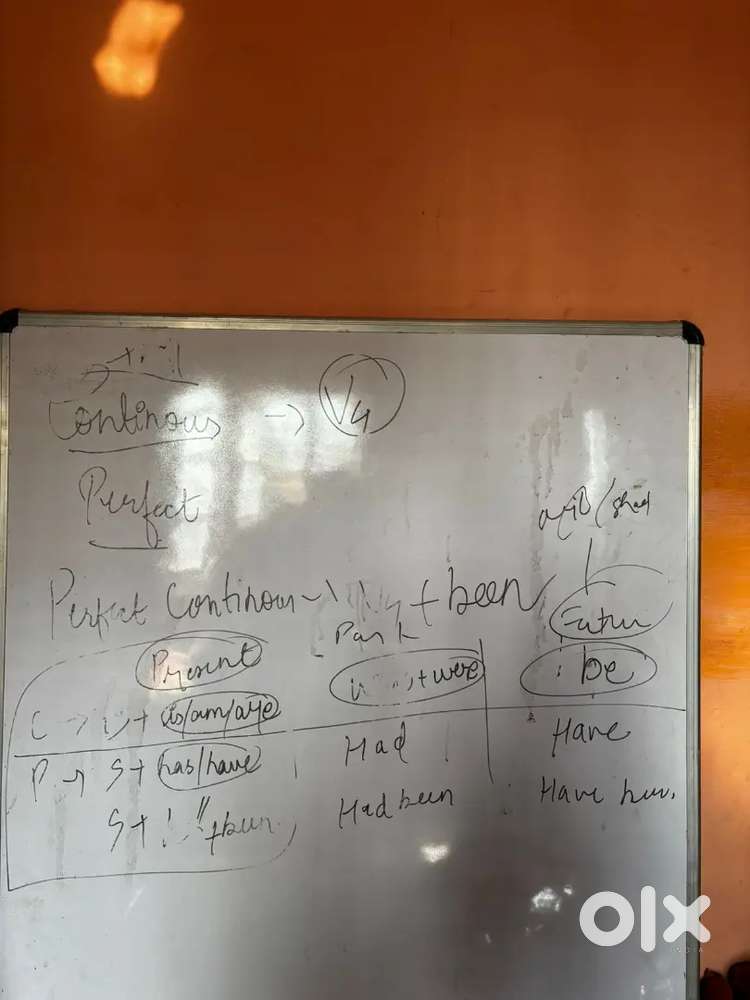 Continous → V4
Perfect
Perfect Continous → V4 + been
Present
Future
is/am/are
were
be
P → S + has/have
Had
Have
S + " + been
Had been
Have
olx
INDIA